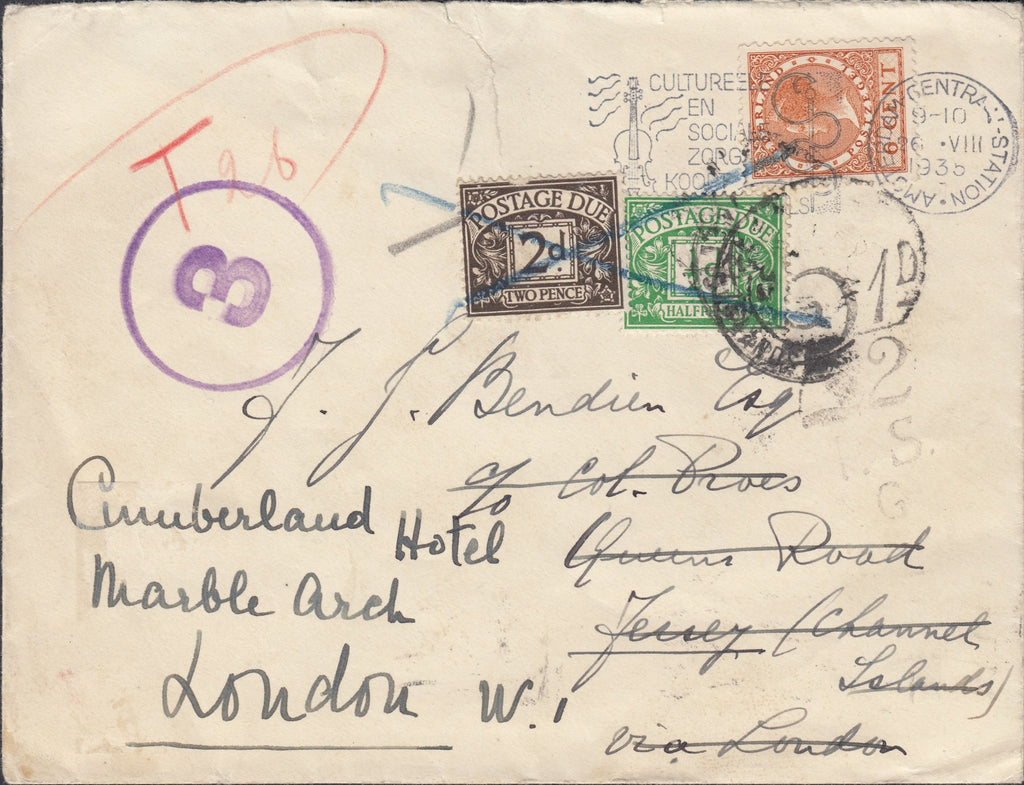 T 26
CULTUREEL
EN
SOCIALE
ZORG
KOOP
AMSTERDAM CENTRAAL-STATION
9-10
26 ·VIII
1935
6 CENT
3
POSTAGE DUE
2d
TWO PENCE
POSTAGE DUE
1D
2
S.
G
J. J. Bendien Esq
c/o Col. Proes
Queens Road
Jersey (Channel
Islands)
via London
Cumberland Hotel
Marble Arch
London W.1